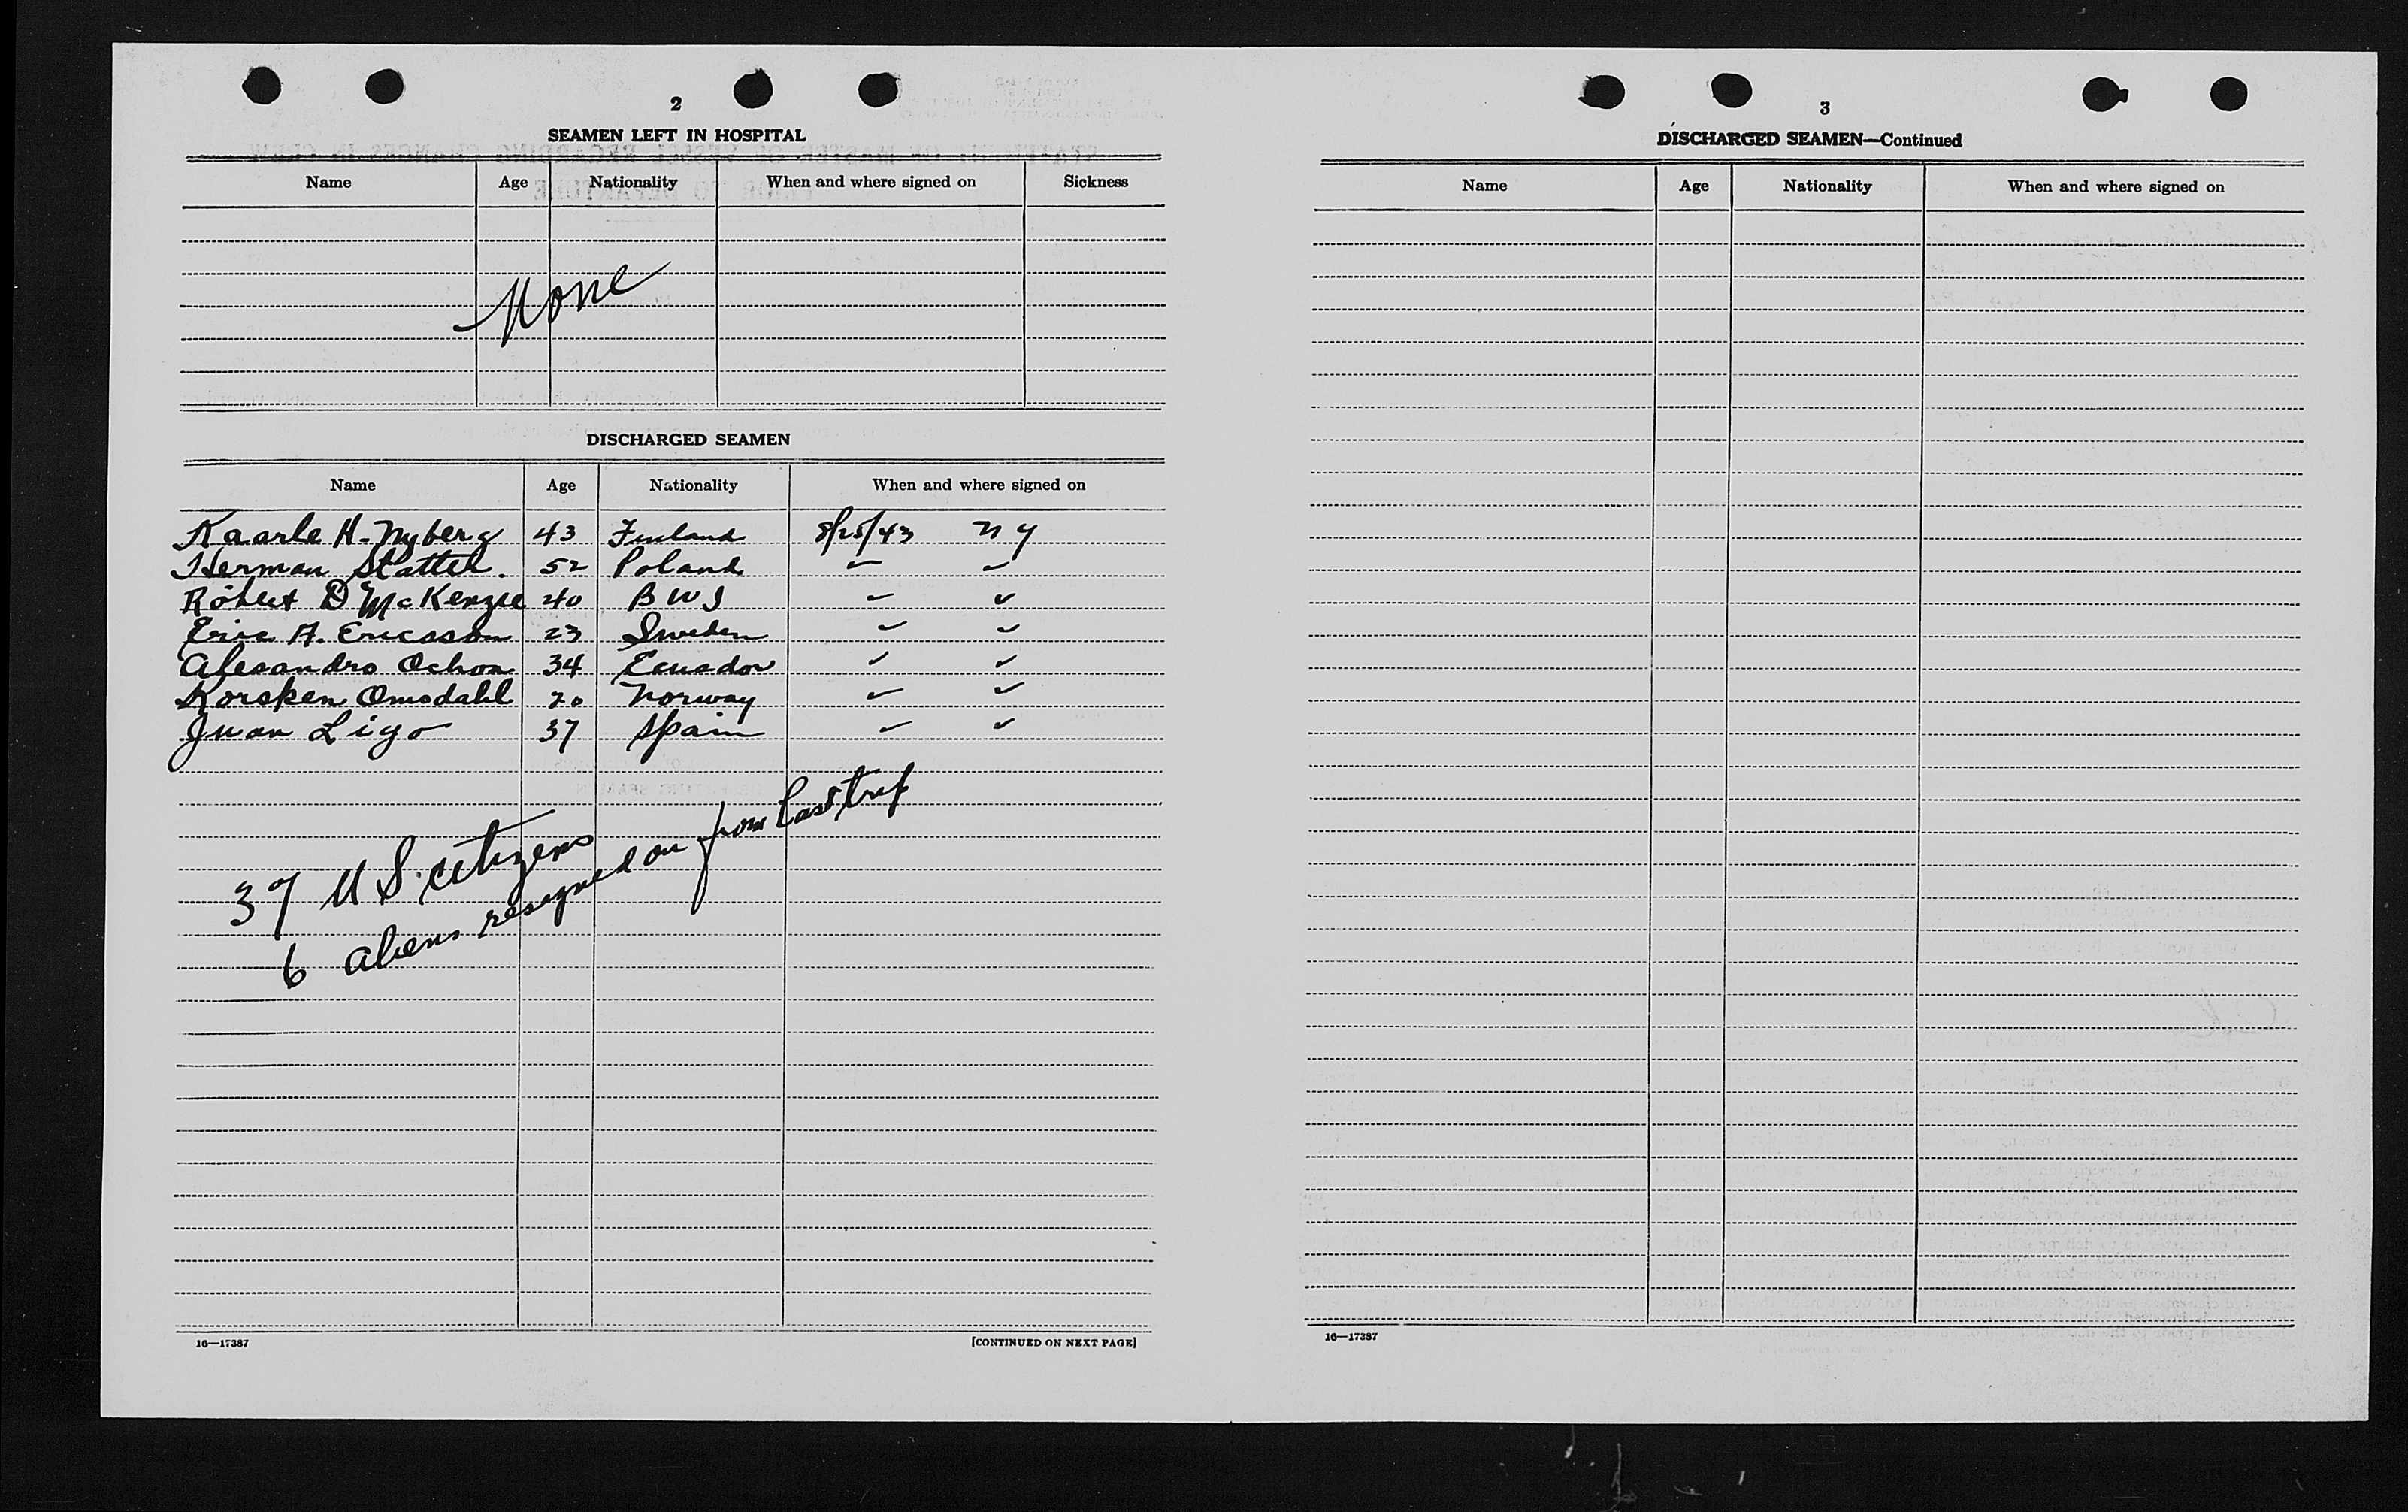 2
SEAMEN LEFT IN HOSPITAL
Name Age Nationality When and where signed on Sickness
None
DISCHARGED SEAMEN
Name Age Nationality When and where signed on
Kaarle H. Nyberg 43 Finland 8/25/43 N Y
Herman Statter. 52 Poland ✓ ✓
Robert D McKenzie 40 B W I ✓ ✓
Eric A. Ericsson 23 Sweden ✓ ✓
Alesandro Ochoa 34 Ecuador ✓ ✓
Korsken Omsdahl 20 Norway ✓ ✓
Juan Ligo 37 Spain ✓ ✓
37 U S. citizens
6 aliens resigned on from last trip
16—17387 [CONTINUED ON NEXT PAGE]
3
DISCHARGED SEAMEN—Continued
Name Age Nationality When and where signed on
16—17387